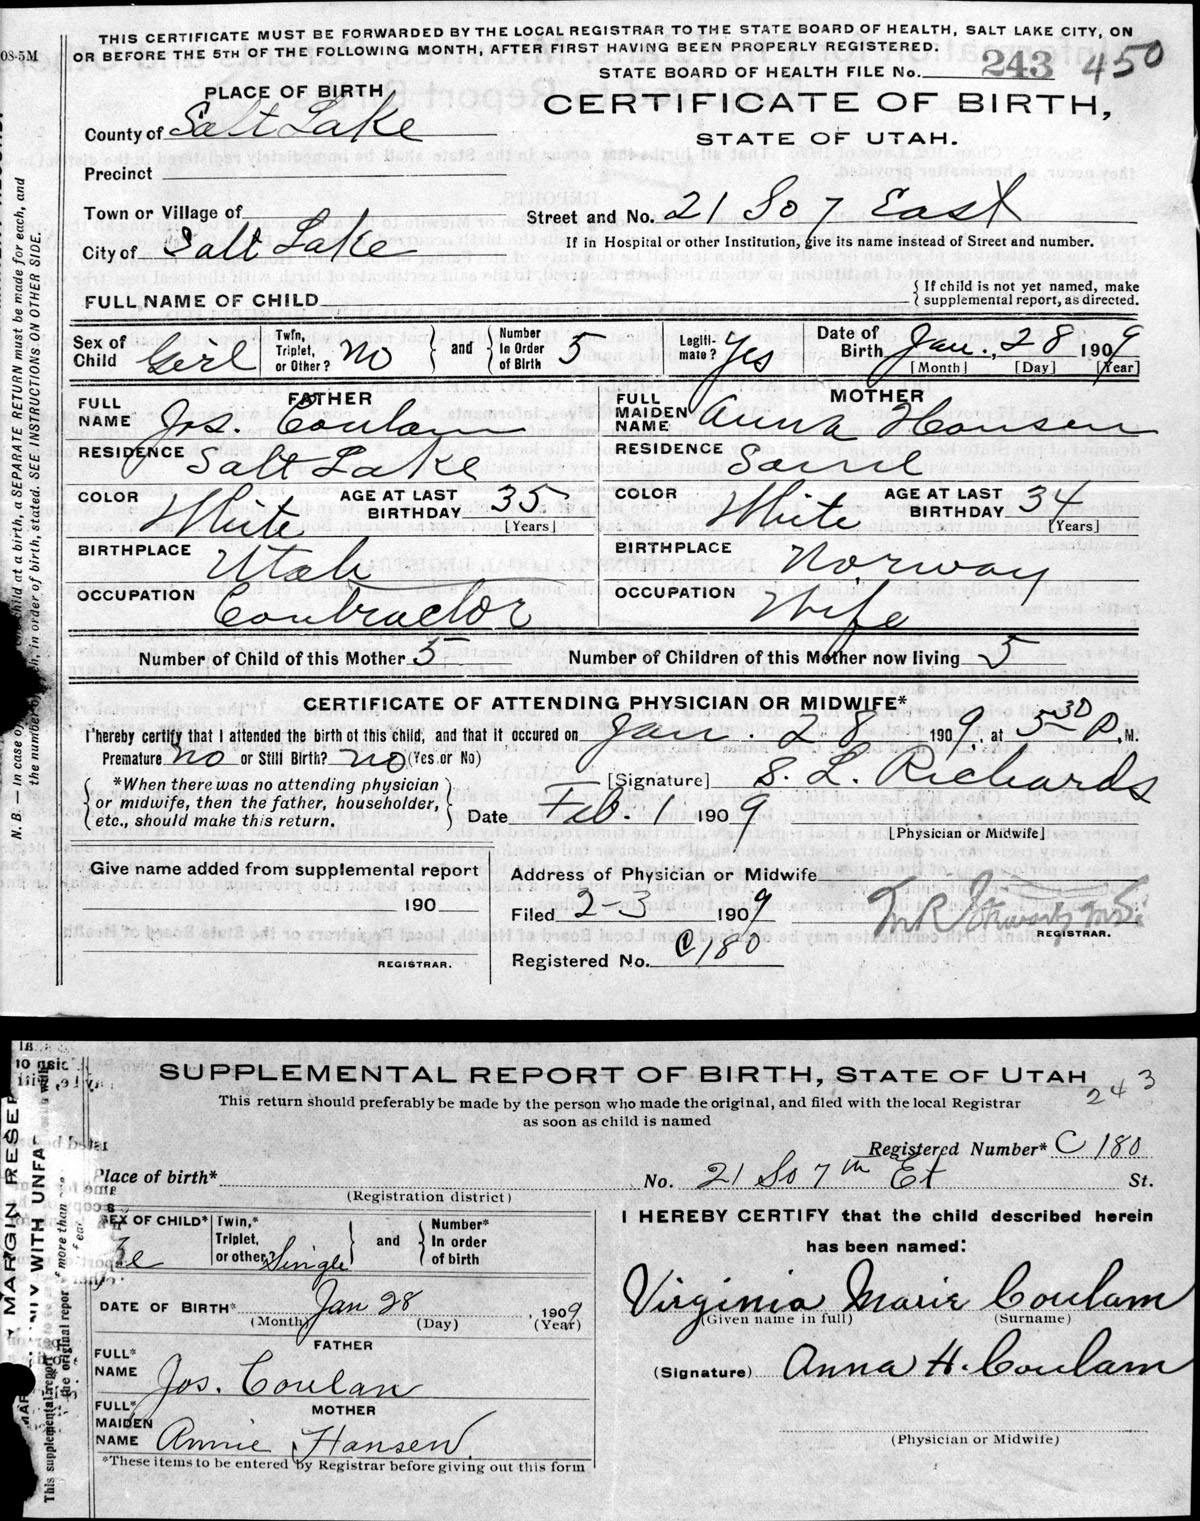 THIS CERTIFICATE MUST BE FORWARDED BY THE LOCAL REGISTRAR TO THE STATE BOARD OF HEALTH, SALT LAKE CITY, ON
OR BEFORE THE 5TH OF THE FOLLOWING MONTH, AFTER FIRST HAVING BEEN PROPERLY REGISTERED.
08-5M
STATE BOARD OF HEALTH FILE No. 243 450
PLACE OF BIRTH
CERTIFICATE OF BIRTH,
STATE OF UTAH.
County of Salt Lake
Precinct
Town or Village of
Street and No. 21 So 7 East
City of Salt Lake
If in Hospital or other Institution, give its name instead of Street and number.
FULL NAME OF CHILD
{ If child is not yet named, make
supplemental report, as directed.
Sex of Child Girl
Twin, Triplet, or Other? No } and { Number In Order of Birth 5
Legiti-mate? Yes
Date of Birth Jan. 28 1909
[Month] [Day] [Year]
FATHER
FULL NAME Jos. Coulam
RESIDENCE Salt Lake
COLOR White AGE AT LAST BIRTHDAY 35
[Years]
BIRTHPLACE Utah
OCCUPATION Contractor
MOTHER
FULL MAIDEN NAME Anna Hansen
RESIDENCE Same
COLOR White AGE AT LAST BIRTHDAY 34
[Years]
BIRTHPLACE Norway
OCCUPATION Wife
Number of Child of this Mother 5 Number of Children of this Mother now living 5
CERTIFICATE OF ATTENDING PHYSICIAN OR MIDWIFE*
I hereby certify that I attended the birth of this child, and that it occured on Jan. 28 1909, at 5 30 P. M.
Premature No or Still Birth? No (Yes or No)
[Signature] S. L. Richards
{ *When there was no attending physician
or midwife, then the father, householder,
etc., should make this return. }
Date Feb. 1 1909
[Physician or Midwife]
Give name added from supplemental report
190
REGISTRAR.
Address of Physician or Midwife
Filed 2-3 1909
REGISTRAR.
Registered No. C180
N. B. — In case of child at a birth, a SEPARATE RETURN must be made for each, and
the number of in order of birth, stated. SEE INSTRUCTIONS ON OTHER SIDE.
SUPPLEMENTAL REPORT OF BIRTH, STATE OF UTAH
243
This return should preferably be made by the person who made the original, and filed with the local Registrar
as soon as child is named
Registered Number* C 180
Place of birth* No. 21 So 7th Et St.
(Registration district)
SEX OF CHILD*
Twin,* Triplet, or other? Single } and { Number* In order of birth
DATE OF BIRTH* Jan 28, 1909
(Month) (Day) (Year)
FATHER
FULL* NAME Jos. Coulan
MOTHER
FULL* MAIDEN NAME Annie Hansen
*These items to be entered by Registrar before giving out this form
I HEREBY CERTIFY that the child described herein
has been named:
Virginia Marie Coulam
(Given name in full) (Surname)
(Signature) Anna H. Coulam
(Physician or Midwife)
MARGIN RESER
WITH UNFA
This supplemental report
the original report
more than